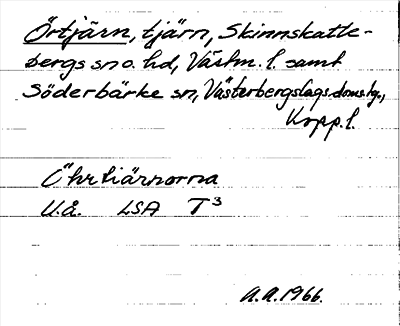 Örtjärn, tjärn, Skinnskatte-
bergs sn o. hd, Västm. l. samt
Söderbärke sn, Västerbergslags doms.,
Kopp. l.
Öhrtiärnorna
U.å. LSA T3
A.A. 1966.